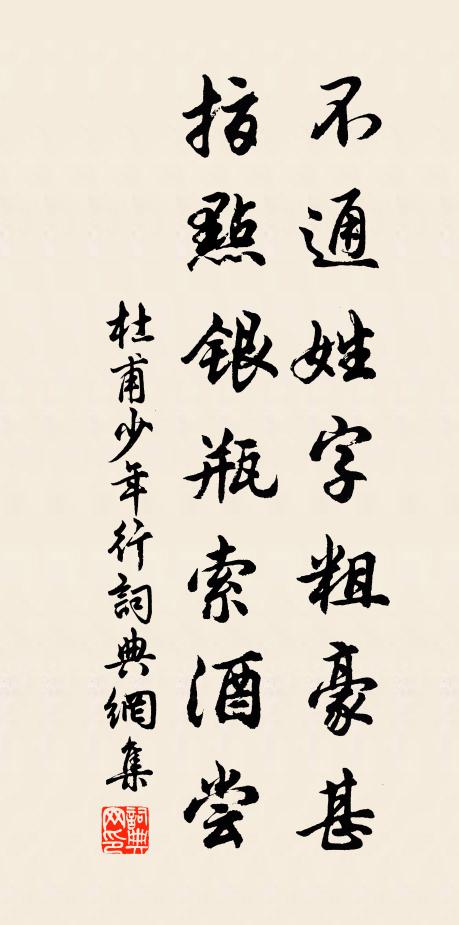 不通姓字粗豪甚
指點銀瓶索酒尝
杜甫少年行詞典網集
詞典网印